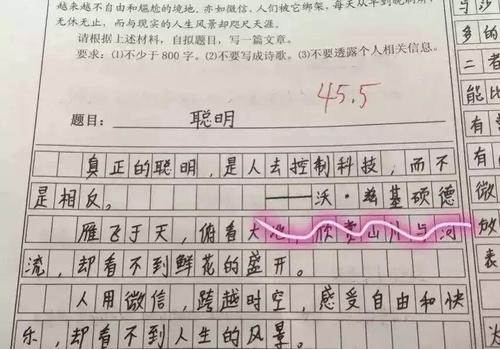 越来越不自由和尴尬的境地,亦如微信,人们被它绑架,每天从早到晚
无休无止,而与现实的人生风景却咫尺天涯。
请根据上述材料,自拟题目,写一篇文章。
要求:(1)不少于 800 字。(2)不要写成诗歌。(3)不要透露个人相关信息。
45.5
题目: 聪明
真正的聪明,是人去控制科技,而不
是相反。 ——沃·兹基硕德
雁飞于天,俯看大地,欣赏山川与河
流,却看不到鲜花的盛开。
人用微信,跨越时空,感受自由和快
乐,却看不到人生的风景。
与沙
多的
二者
能比
有
有
微
放
达